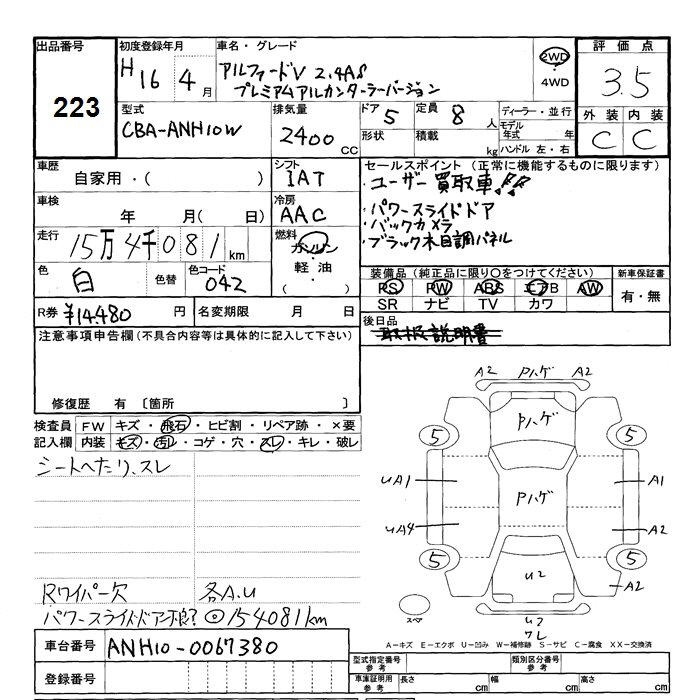 出品番号
223
初度登録年月
H 16 4月
車名・グレード
アルファードV 2.4AS
プレミアムアルカンターラバージョン
2WD
4WD
評価点
3.5
外装 内装
C C
型式
CBA-ANH10W
排気量
2400 CC
ドア 5
形状
定員 8 人
積載 kg
ディーラー・並行
モデル年式 年
ハンドル 左・右
車歴
自家用・( )
シフト
IAT
セールスポイント (正常に機能するものに限ります)
・ユーザー買取車!!
・パワースライドドア
・バックカメラ
・ブラック木目調パネル
車検
年 月( 日)
冷房
AAC
走行
15万4千081 km
燃料
ガソリン
軽・油
・( )
色
白
色替
色コード
042
装備品 (純正品に限り○をつけてください)
PS PW ABS エアB AW
SR ナビ TV カワ
新車保証書
有・無
R券 ¥14,480 円
名変期限 月 日
後日品
取扱説明書
注意事項申告欄(不具合内容等は具体的に記入して下さい)
修復歴 有 〔箇所 〕
検査員記入欄
FW キズ・飛石・ヒビ割・リペア跡・×要
内装 キズ・汚レ・コゲ・穴・スレ・キレ・破レ
シートヘたり、スレ
Rワイパー欠 各A.U
パワースライドドア不良? ◎154081km
A2 Pハゲ A2
Pハゲ
5 5
UA1 Pハゲ A1
UA4 A2
5 5
U2 A2
スペア
U2
ワレ
A-キズ E-エクボ U-凹み W-補修跡 S-サビ C-腐食 XX-交換済
車台番号
ANH10-0067380
登録番号
型式指定番号 参考
類別区分番号 参考
車庫証明用 参考
長さ cm 幅 cm 高さ cm